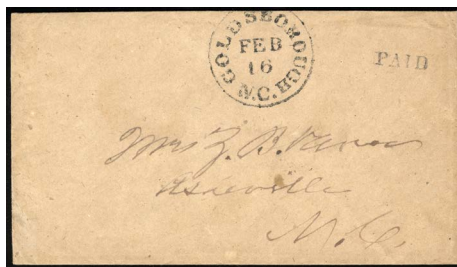 GOLDSBOROUGH N.C.
FEB
16
PAID
Mrs Z. B. Vance
Asheville
N.C.